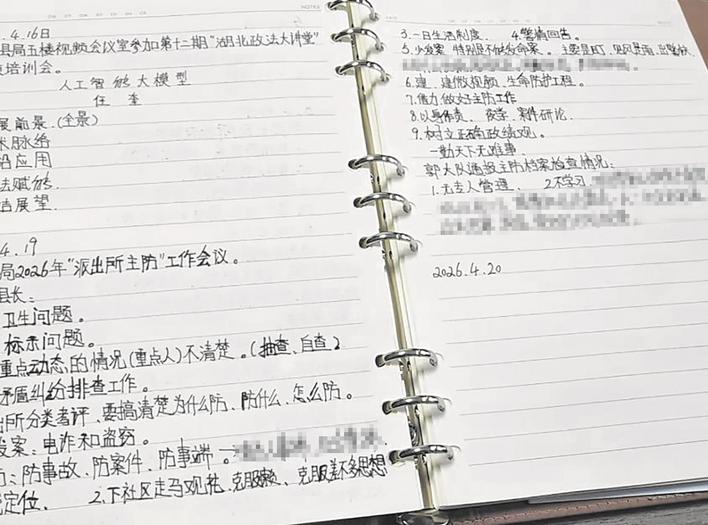 .4.16日
县局五楼视频会议室参加第十二期“湖北政法大讲堂”
培训会。
人工智能大模型
任 奎
展前景.(全景)
术脉络
沿应用
法赋能.
结展望.
4.19
局2026年“派出所主防”工作会议。
县长:
卫生问题。
标示问题。
重点动态的情况(重点人)不清楚。(抽查、自查)
矛盾纠纷排查工作。
出所分类考评、要搞清楚为什么防、防什么、怎么防。
发案:电诈和盗窃。
防:防事故、防案件、防事端。
定位. 2.下社区走马观花、克服懒、克服差不多思想
3.一日生活制度. 4.警情回告。
5.少发案.特别是不能发命案。主要是盯、
6.建、建微视频、生命防护工程。
7.借力做好主防工作
8.以身作责、夜学、案件研论.
9.树立正确政绩观。
一勤天下无难事
郭大队通报主防档案检查情况:
1.无专人管理. 2.不学习.
2026.4.20